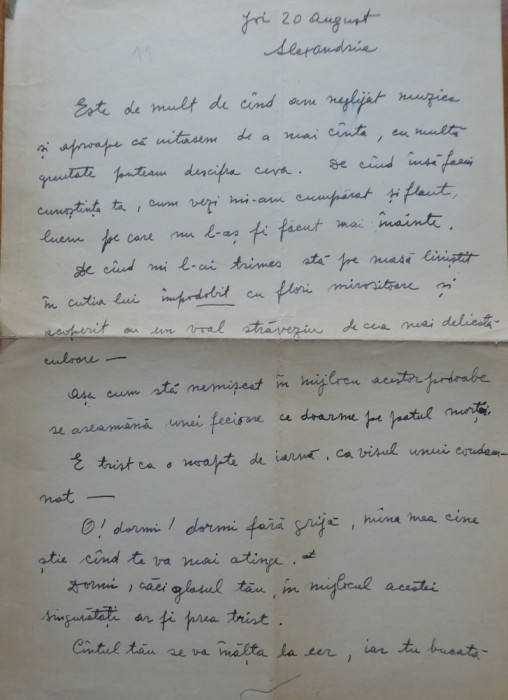 Joi 20 August
Alexandria
Este de mult de cînd am neglijat muzica
și aproape că uitasem de a mai cînta, cu multă
greutate puteam descifra ceva. De cînd însă făcui
cunoștința ta, cum vezi mi-am cumpărat și flaut,
lucru pe care nu l-aș fi făcut mai înainte.
De cînd mi l-ai trimes stă pe masă liniștit
în cutia lui împodobit cu flori mirositoare și
acoperit cu un voal străveziu de cea mai delicată
culoare —
Așa cum stă nemișcat în mijlocu acestor podoabe
se aseamănă unei fecioare ce doarme pe patul morții
E trist ca o noapte de iarnă, ca visul unui condam-
nat —
O! dormi! dormi fără grijă, mîna mea cine
știe cînd te va mai atinge.
Dormi, căci glasul tău, în mijlocul acestei
singurătăți ar fi prea trist.
Cîntul tău se va înălța la cer, iar tu bucată